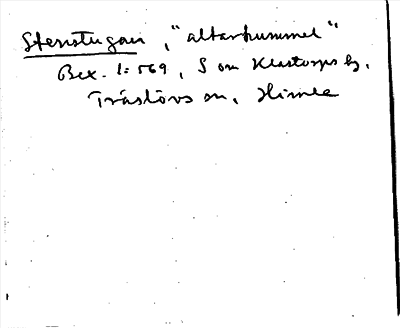 Stenstugan, "altarkummel"
Bex. 1:569, S om Klastorps by,
Träslövs sn, Himle